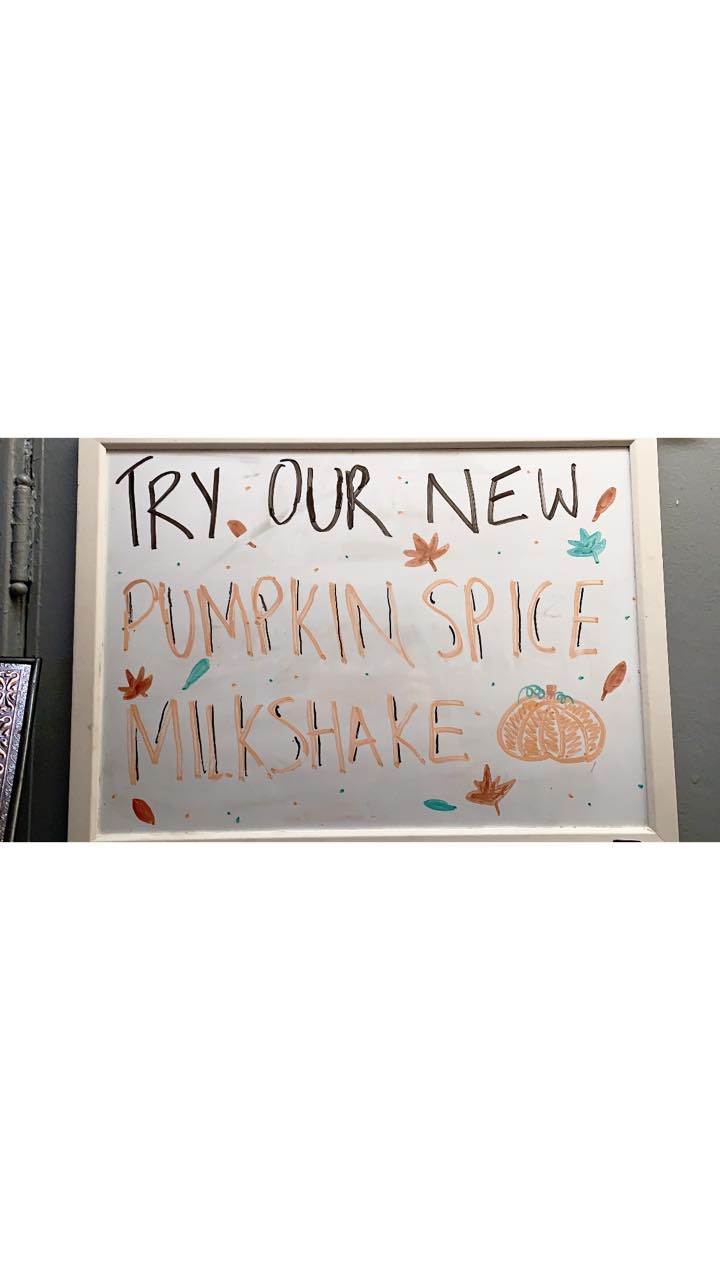 TRY OUR NEW
PUMPKIN SPICE
MILKSHAKE